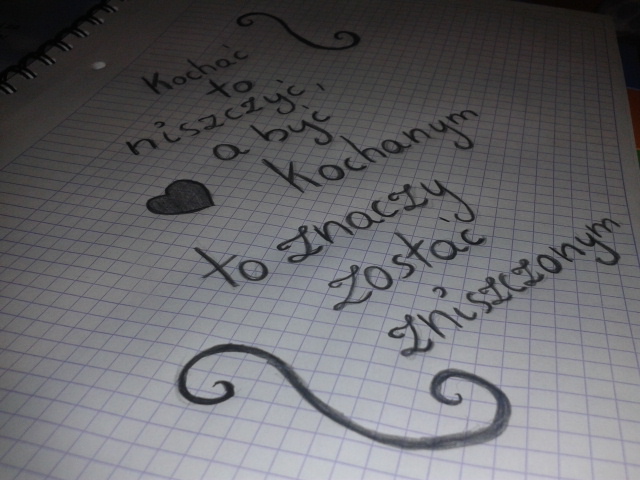 Kochać
to
niszczyć,
a być
kochanym
to znaczy
zostać
zniszczonym